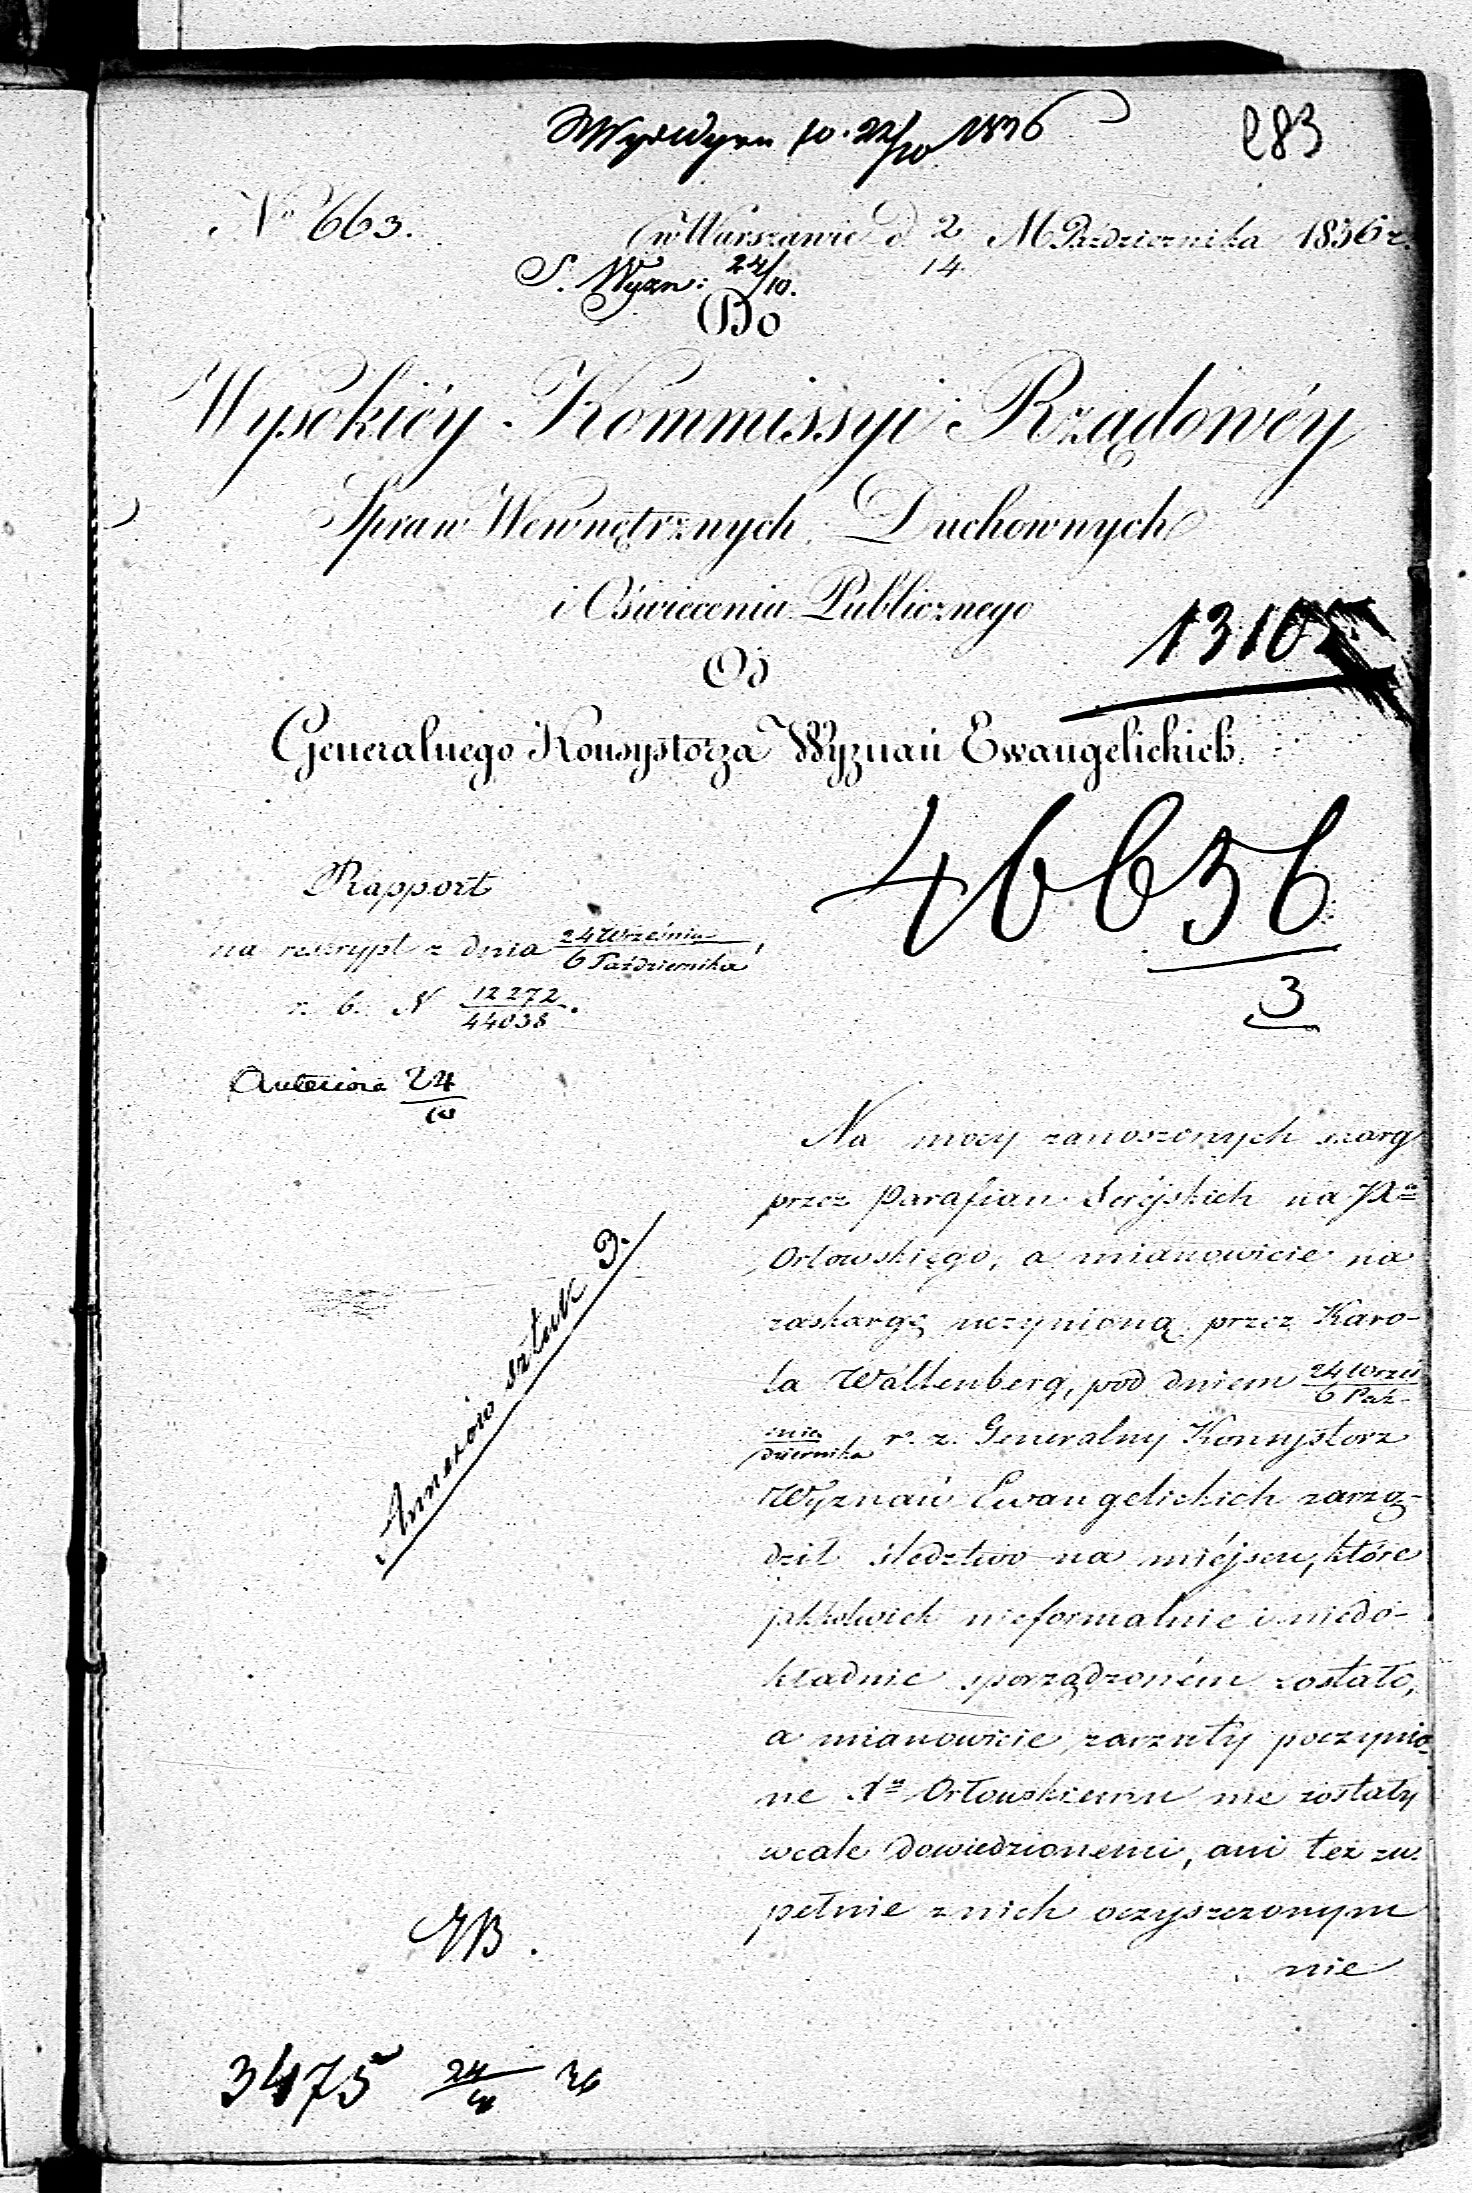 283
No 663.
w Warszawie d. 2/14 M. Października 1836 r.
S. Wyzn: 24/10.
Do
Wysokiéy Kommissyi Rządowéy
Spraw Wewnętrznych, Duchownych
i Oświecenia Publicznego
Od
Generalnego Konsystorza Wyznań Ewangelickich.
46656
3
Rapport
na reskrypt z dnia 24 Września / 6 Października
r. b. N 12272/44038.
Anteriora 24/10
Na mocy zanoszonych skarg
przez Parafian Seréjskich na Xa
Orłowskiego, a mianowicie na
zaskargę uczynioną przez Karo-
la Wallenberg, pod dniem 24 Wrześ / 6 Paź-
nia / dziernika r. z. Generalny Konsystorz
Wyznań Ewangelickich zarzą-
dził śledztwo na miéjscu, które
jakkolwiek nieformalnie i niedo-
kładnie sporządzoném zostało,
a mianowicie, zarzuty poczynio-
ne Xu Orłowskiemu nie zostały
wcale dowiedzionemi, ani też zu-
pełnie z nich oczyszczonym
nie
Annexów sztuk 3.
3475 24/10 36